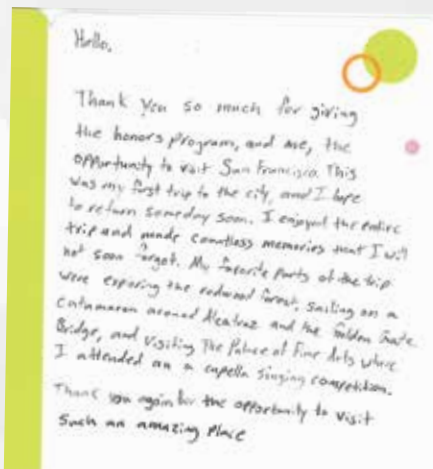 Hello,
Thank you so much for giving
the honors program, and me, the
opportunity to visit San Francisco. This
was my first trip to the city, and I hope
to return someday soon. I enjoyed the entire
trip and made countless memories that I will
not soon forget. My favorite parts of the trip
were exporing the redwood forest, sailing on a
catamaran around Alcatraz and the Golden Gate
Bridge, and visiting The Palace of Fine Arts where
I attended an a capella singing competition.
Thank you again for the opportunity to visit
such an amazing place